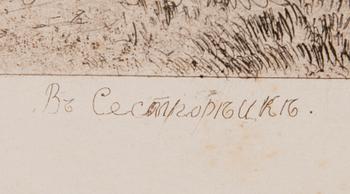 Въ Сестрорѣцкѣ.